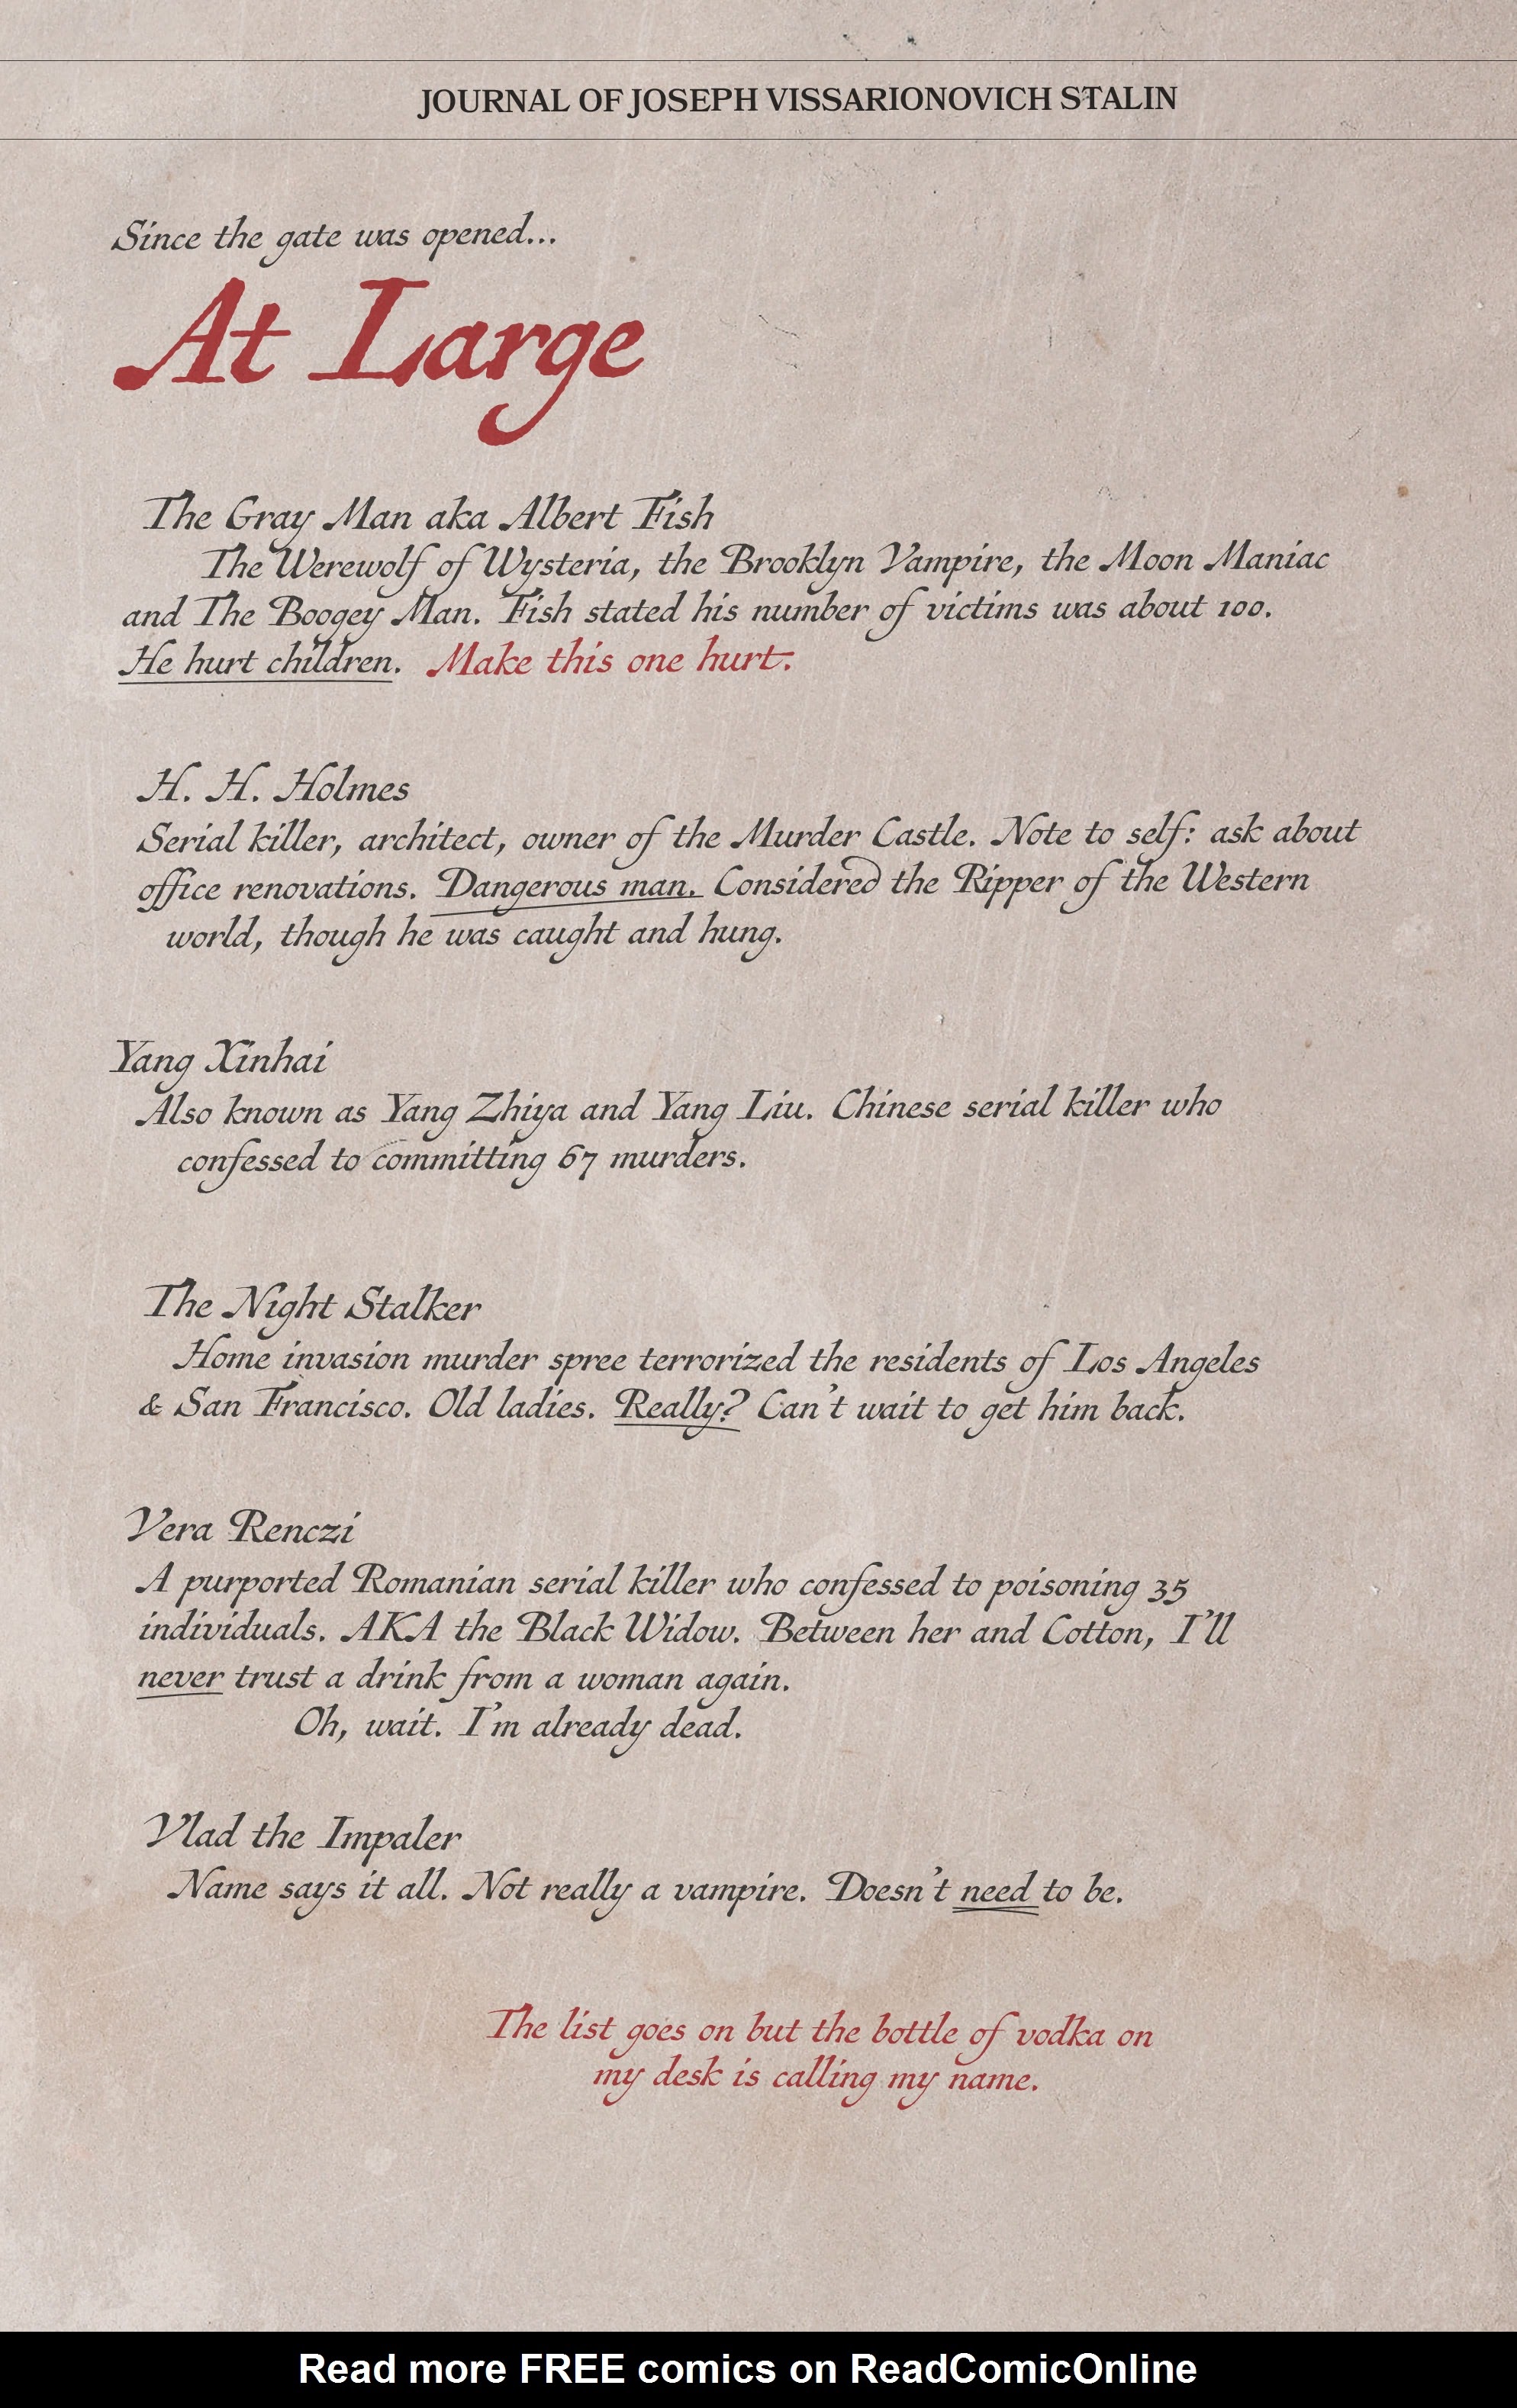 JOURNAL OF JOSEPH VISSARIONOVICH STALIN
Since the gate was opened...
At Large
The Gray Man aka Albert Fish
The Werewolf of Wysteria, the Brooklyn Vampire, the Moon Maniac
and The Boogey Man. Fish stated his number of victims was about 100.
He hurt children. Make this one hurt.
H. H. Holmes
Serial killer, architect, owner of the Murder Castle. Note to self: ask about
office renovations. Dangerous man. Considered the Ripper of the Western
world, though he was caught and hung.
Yang Xinhai
Also known as Yang Zhiya and Yang Liu. Chinese serial killer who
confessed to committing 67 murders.
The Night Stalker
Home invasion murder spree terrorized the residents of Los Angeles
& San Francisco. Old ladies. Really? Can't wait to get him back.
Vera Renczi
A purported Romanian serial killer who confessed to poisoning 35
individuals. AKA the Black Widow. Between her and Cotton, I'll
never trust a drink from a woman again.
Oh, wait. I'm already dead.
Vlad the Impaler
Name says it all. Not really a vampire. Doesn't need to be.
The list goes on but the bottle of vodka on
my desk is calling my name.
Read more FREE comics on ReadComicOnline